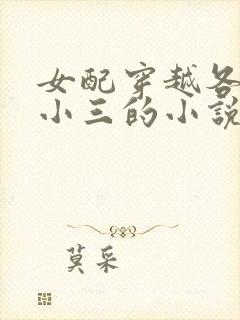 女配穿越各
小三的小说
莫采